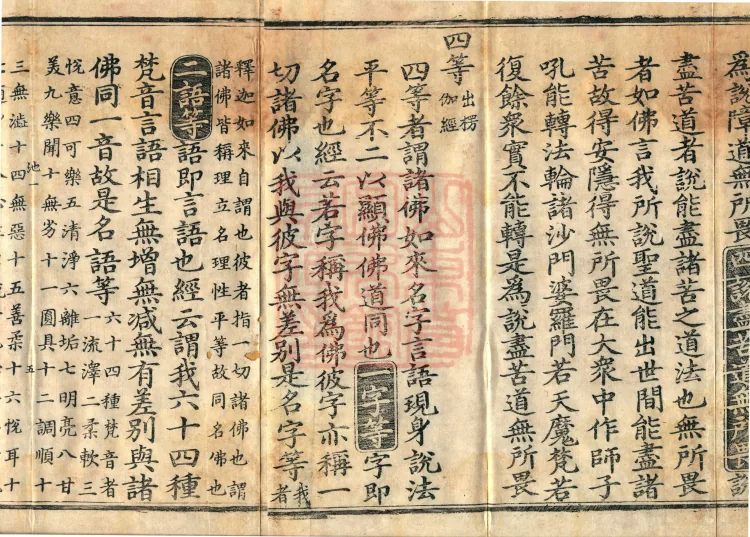 爲說障道無所畏四說盡苦道無所畏說
盡苦道者說能盡諸苦之道法也無所畏
者如佛言我所說聖道能出世間能盡諸
苦故得安隱得無所畏在大衆中作師子
吼能轉法輪諸沙門婆羅門若天魔梵若
復餘衆實不能轉是爲說盡苦道無所畏
四等出楞伽經
四等者謂諸佛如來名字言語現身說法
平等不二以顯佛佛道同也一字等字即
名字也經云若字稱我爲佛彼字亦稱一
切諸佛以我與彼字無差別是名字等我者
釋迦如來自謂也彼者指一切諸佛也謂
諸佛皆稱理立名理性平等故同名佛也
二語等語即言語也經云謂我六十四種
梵音言語相生無增無減無有差別與諸
佛同一音故是名語等六十四種梵音者一流澤二柔軟三
悅意四可樂五清淨六離垢七明亮八甘
美九樂聞十無劣十一圓具十二調順十
三無澁十四無惡十五善柔十六悅耳十
池一
五